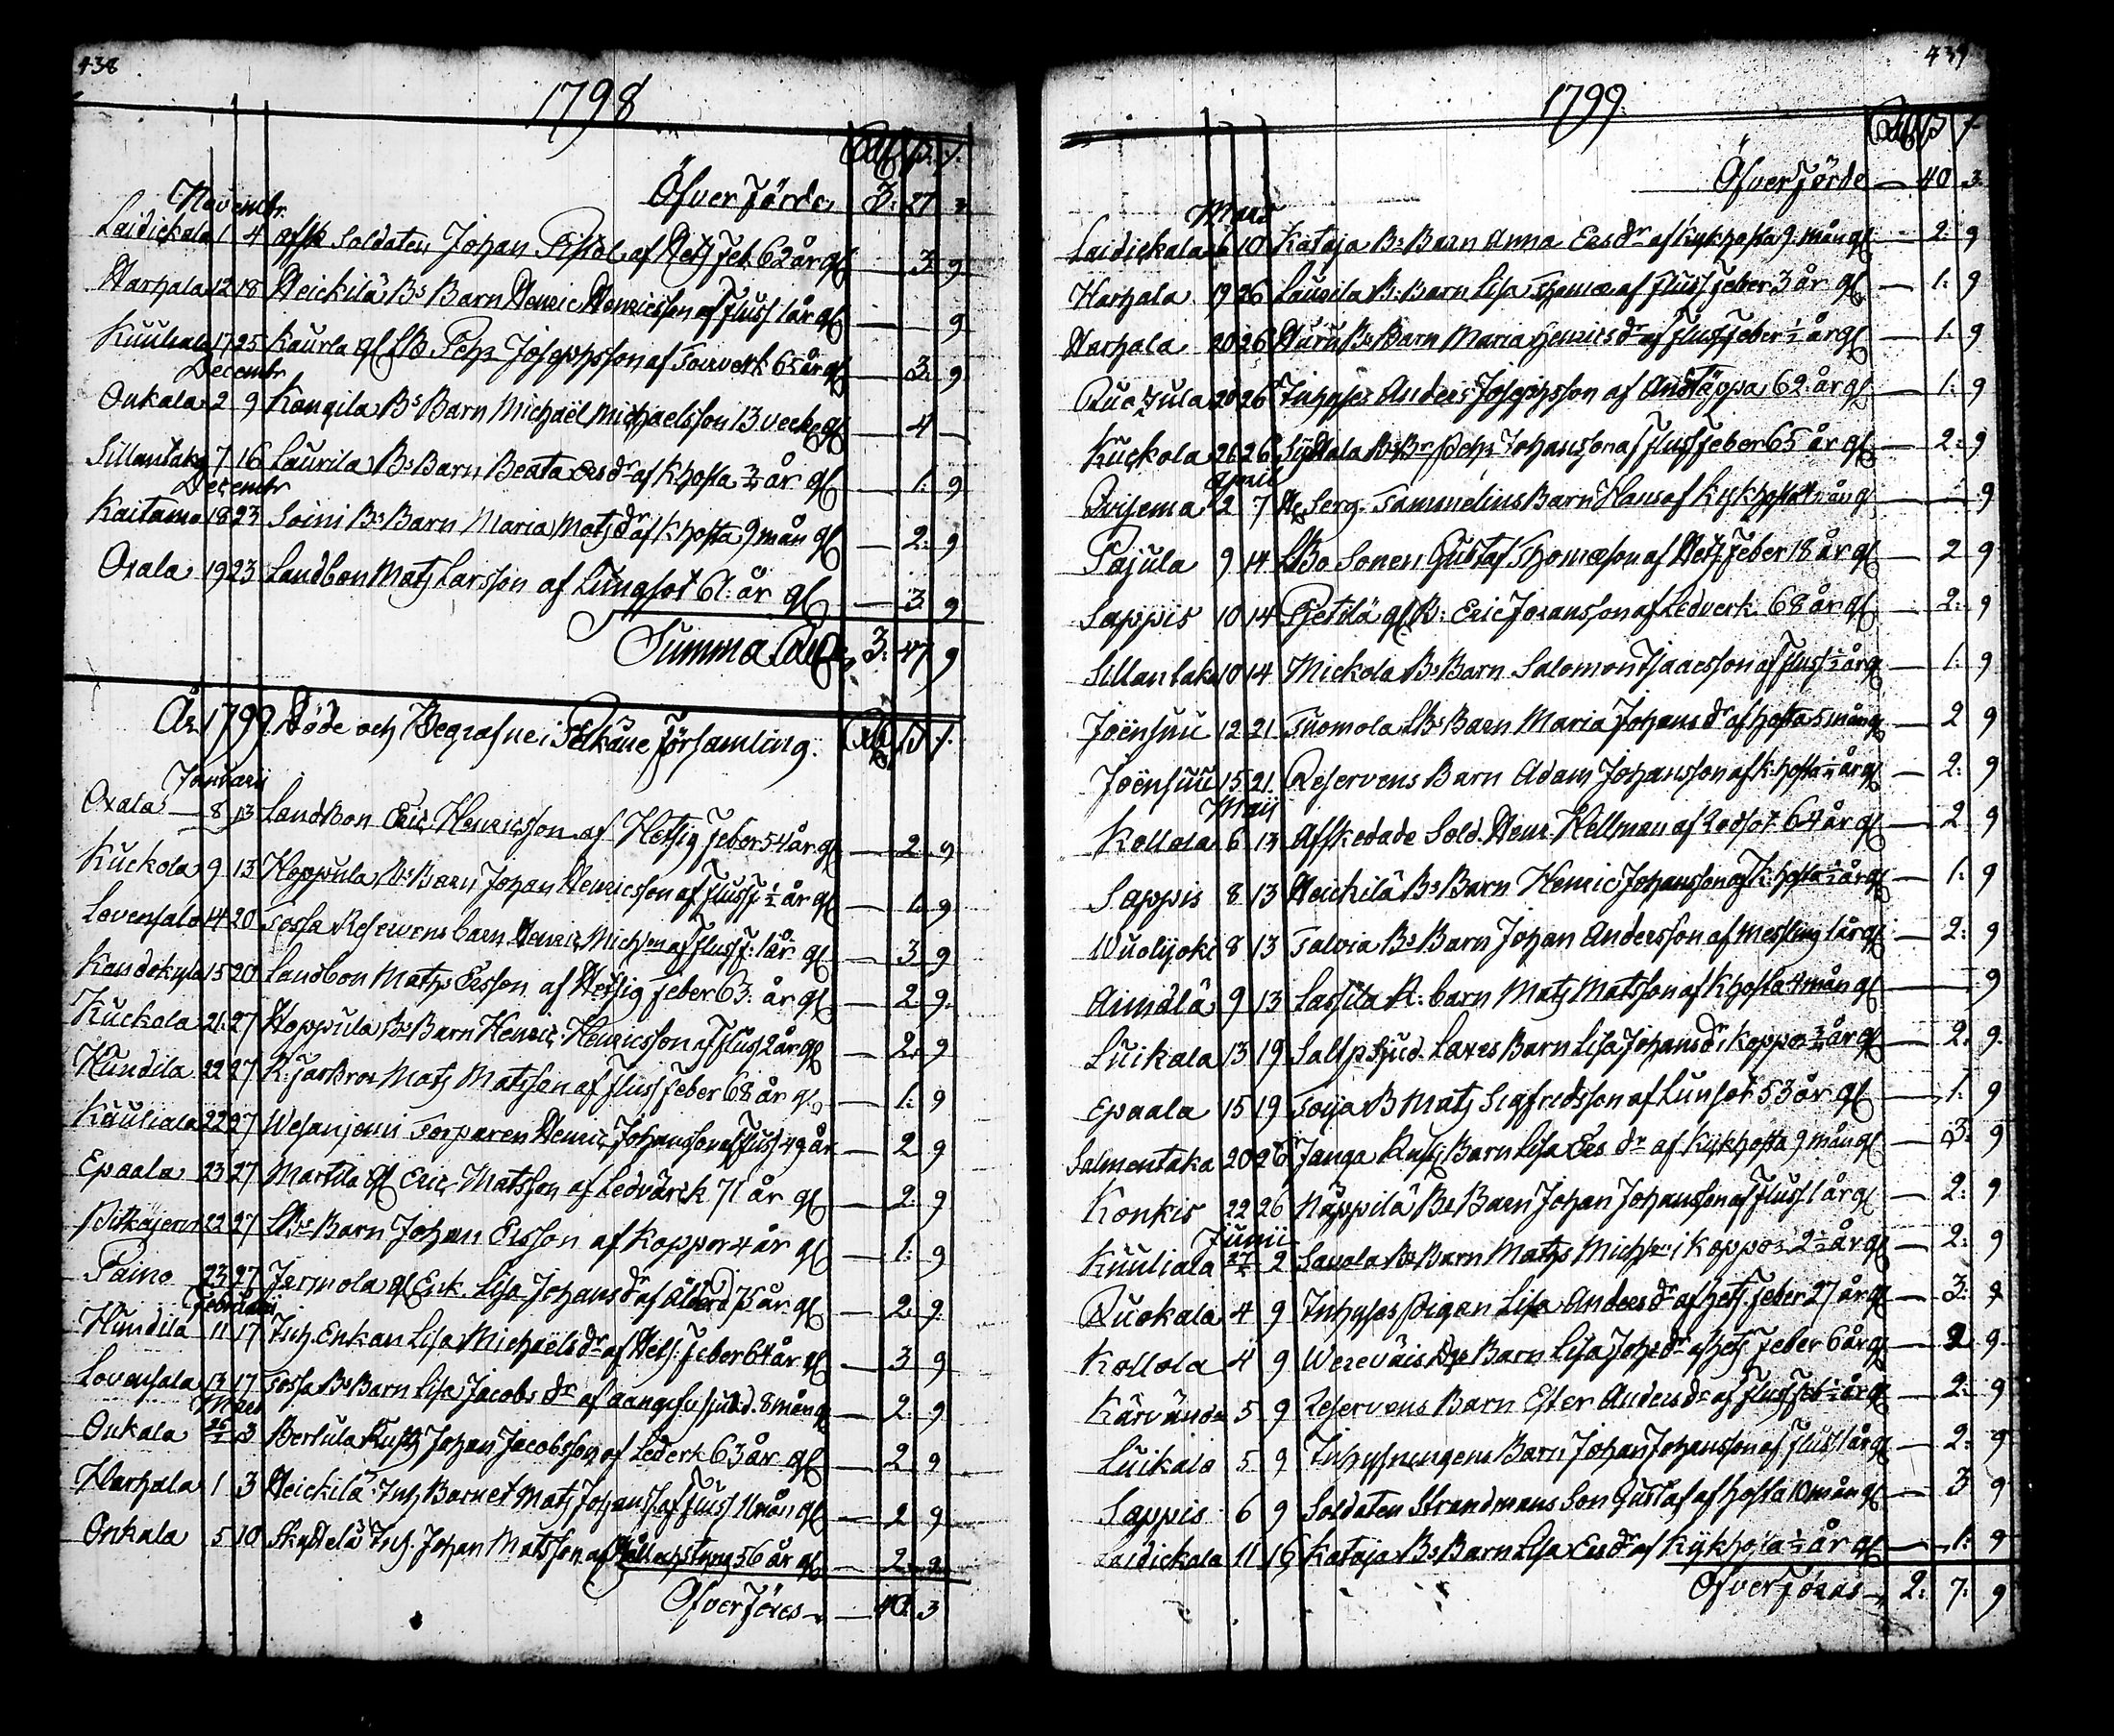 438
1798
Rdr ß. r.
Öfver Förde 3: 27 3
Novembr.
Laidickala 1 4 afsk Soldaten Johan Pistol af Hets Feb. 62 år gl — 3: 9
Harhala 12 18 Heickilä Bs Barn Henric Henricsson af Fluss 1 år gl — 9
Kuuliala 17 25 Kaurla gl Petr Josephsson af 65 år gl — 3: 9
Decembr
Onkala 2 9 Kongila Bs Barn Michaël Michaelsson 13 veck gl — 4 —
Sillantaka 7 16 Laurila Bs Barn Beata Ersdr af Khosta ¾ år gl — 1: 9
Decembr
Kaitamo 18 23 Soini Bs Barn Maria Matsdr af Khosta 9 mån gl — 2: 9
Oxala 19 23 Landbon Mats Larsson af Lungsot 61: år gl — 3: 9
Summa Rdr 3: 47 9
År 1799. Döde och Begrafne i Pelkäne Församling. Rdr ß r.
Januarii
Oxala — 8 13 Landbon Eric Henricsson af Hetsig feber 54 år gl — 2: 9
Kuckola 9 13 Hoppula Bs Barn Johan Henricsson af Fluss F ½ år gl — 1: 9
Lovensala 14 20 Sossa Reservens barn Henric Michson af Fluss F: 1 år gl — 3 9
Kandokyla 15 20 Landbon Mats Ersson af Hetsig Feber 63: år gl — 2: 9.
Kuckola 21: 27 Hoppula Bs Barn Henric Henricsson af Fluss 2 år gl — 2: 9
Hundila 22 27 Mats Matsson af Fluss feber 68 år gl — 1: 9
Kuuliala 22 27 Wesanjemi Torparen Henric Johansson af Fluss 49 år — 2 9
Epaala 23 27 Martila gl Eric Matsson af Ledvärck 71 år gl — 2: 9
22 27 Bs Barn Johan Ersson af Koppor 4 år gl — 1: 9
Paino 23 27 Jermola gl Enk. Lisa Johansdr af Ålderd 75 år gl — 2: 9.
Februarii
Hundila 11 17 Inh. Enkan Lisa Michaëlsdr af Hets: Feber 64 år gl — 3 9
Lovensala 13 17 Sossa Bs Barn Lisa Jacobsdr af 8 mån gl — 2: 9
Mars
Onkala 26/2 3 Bertula Johan Jacobsson af Lederk 63 år gl — 2 9
Harhala 1 3 Heickilä Inh Barnet Mats Johanss af Fluss 11 mån gl — 2 9
Onkala 5 10 Skyttelä Inh. Johan Matsson af 56 år gl — 2: 9
Öfverföres — 40: 3
439
1799.
Rdr ß r
Öfver Förde — 40 3:
Mars
Laidickala 6 10 Kataja Bs Barn Anna Ersdr af Kykhosta 9: mån gl — 2: 9
Harhala 19 26 Laurila B: Barn Lisa Thomæ af Fluss Feber 3 år gl — 1: 9
Harhala 20 26 Bs Barn Maria Henricsdr af Fluss Feber ½ år gl — 1: 9
20 26 Inhyses Anders Josephsson af Andtäppa 62: år gl — 1: 9
Kuckola 26 26 Petr Johansson af Fluss feber 65 år gl — 2: 9
April
2 7 Serg. Tammelins Barn Hans af Kykhosta mån gl — 9
Pajula 9 14 Sonen Gustaf Thomæson af Hets feber 18 år gl — 2 9
Sappis 10 14 Pietilä gl B: Eric Johansson af Ledverk 68 år gl — 2: 9
Sillantaka 10 14 Mickola Bs Barn Salomon Isaacsson af Fluss ½ år gl — 1: 9
Joënsuu 12 21 Tuomola Bs Barn Maria Johansdr af hosta 5 mån gl — 2 9
Joënsuu 15 21 Reservens Barn Adam Johansson af K: hosta år gl — 2: 9
Maij
Kollola 6 13 Affkedade Sold. Henr Hellman af Rodsot 64 år gl — 2 9
Sappis 8 13 Heickilä Bs Barn Henric Johansson af K: hosta ½ år gl — 1: 9
Wuolijoki 8 13 Talvia Bs Barn Johan Andersson af Messling 1 år gl — 2: 9
Aimälä 9 13 Lassila R: barn Mats Matsson af Khosta 4 mån gl — 9
Luikala 13 19 Barn Lisa Johansdr i Koppor ¾ år gl — 2: 9.
Epaala 15 19 Toija B Mats Sigfredsson af Lunsot 53 år gl — 1: 9
Salmentaka 20 26 Janga Barn Lisa Ersdr af Kykhosta 9 mån gl — 3: 9
Konkis 22 26 Näppilä Bs Barn Johan Johansson af Fluss 1 år gl — 2: 9
Junii
Kuuliala 27/5 2 Savola Bs Barn Mats Michson i Koppor 2½ år gl — 2: 9
4 9 Inhyses Pigan Lisa Andersdr af Hets. feber 27 år gl — 3: 9
Kollola 4 9 Barn Lisa Johsdr af Hets feber 6 år gl — 2 9
5 9 Reservens Barn Ester Andersdr af Fluss feb ½ år gl — 2: 9
Luikala 5 9 Inhysningens Barn Johan Johansson af Fluss 1 år gl — 2: 9
Sappis 6 9 Soldaten Strandmans Son Gustaf af Hosta 10 mån gl — 3 9
Laidickala 11 16 Kataja Bs Barn Lisa Ersdr af Kykhosta ½ år gl — 1: 9
Öfverföres — 2: 7: 9